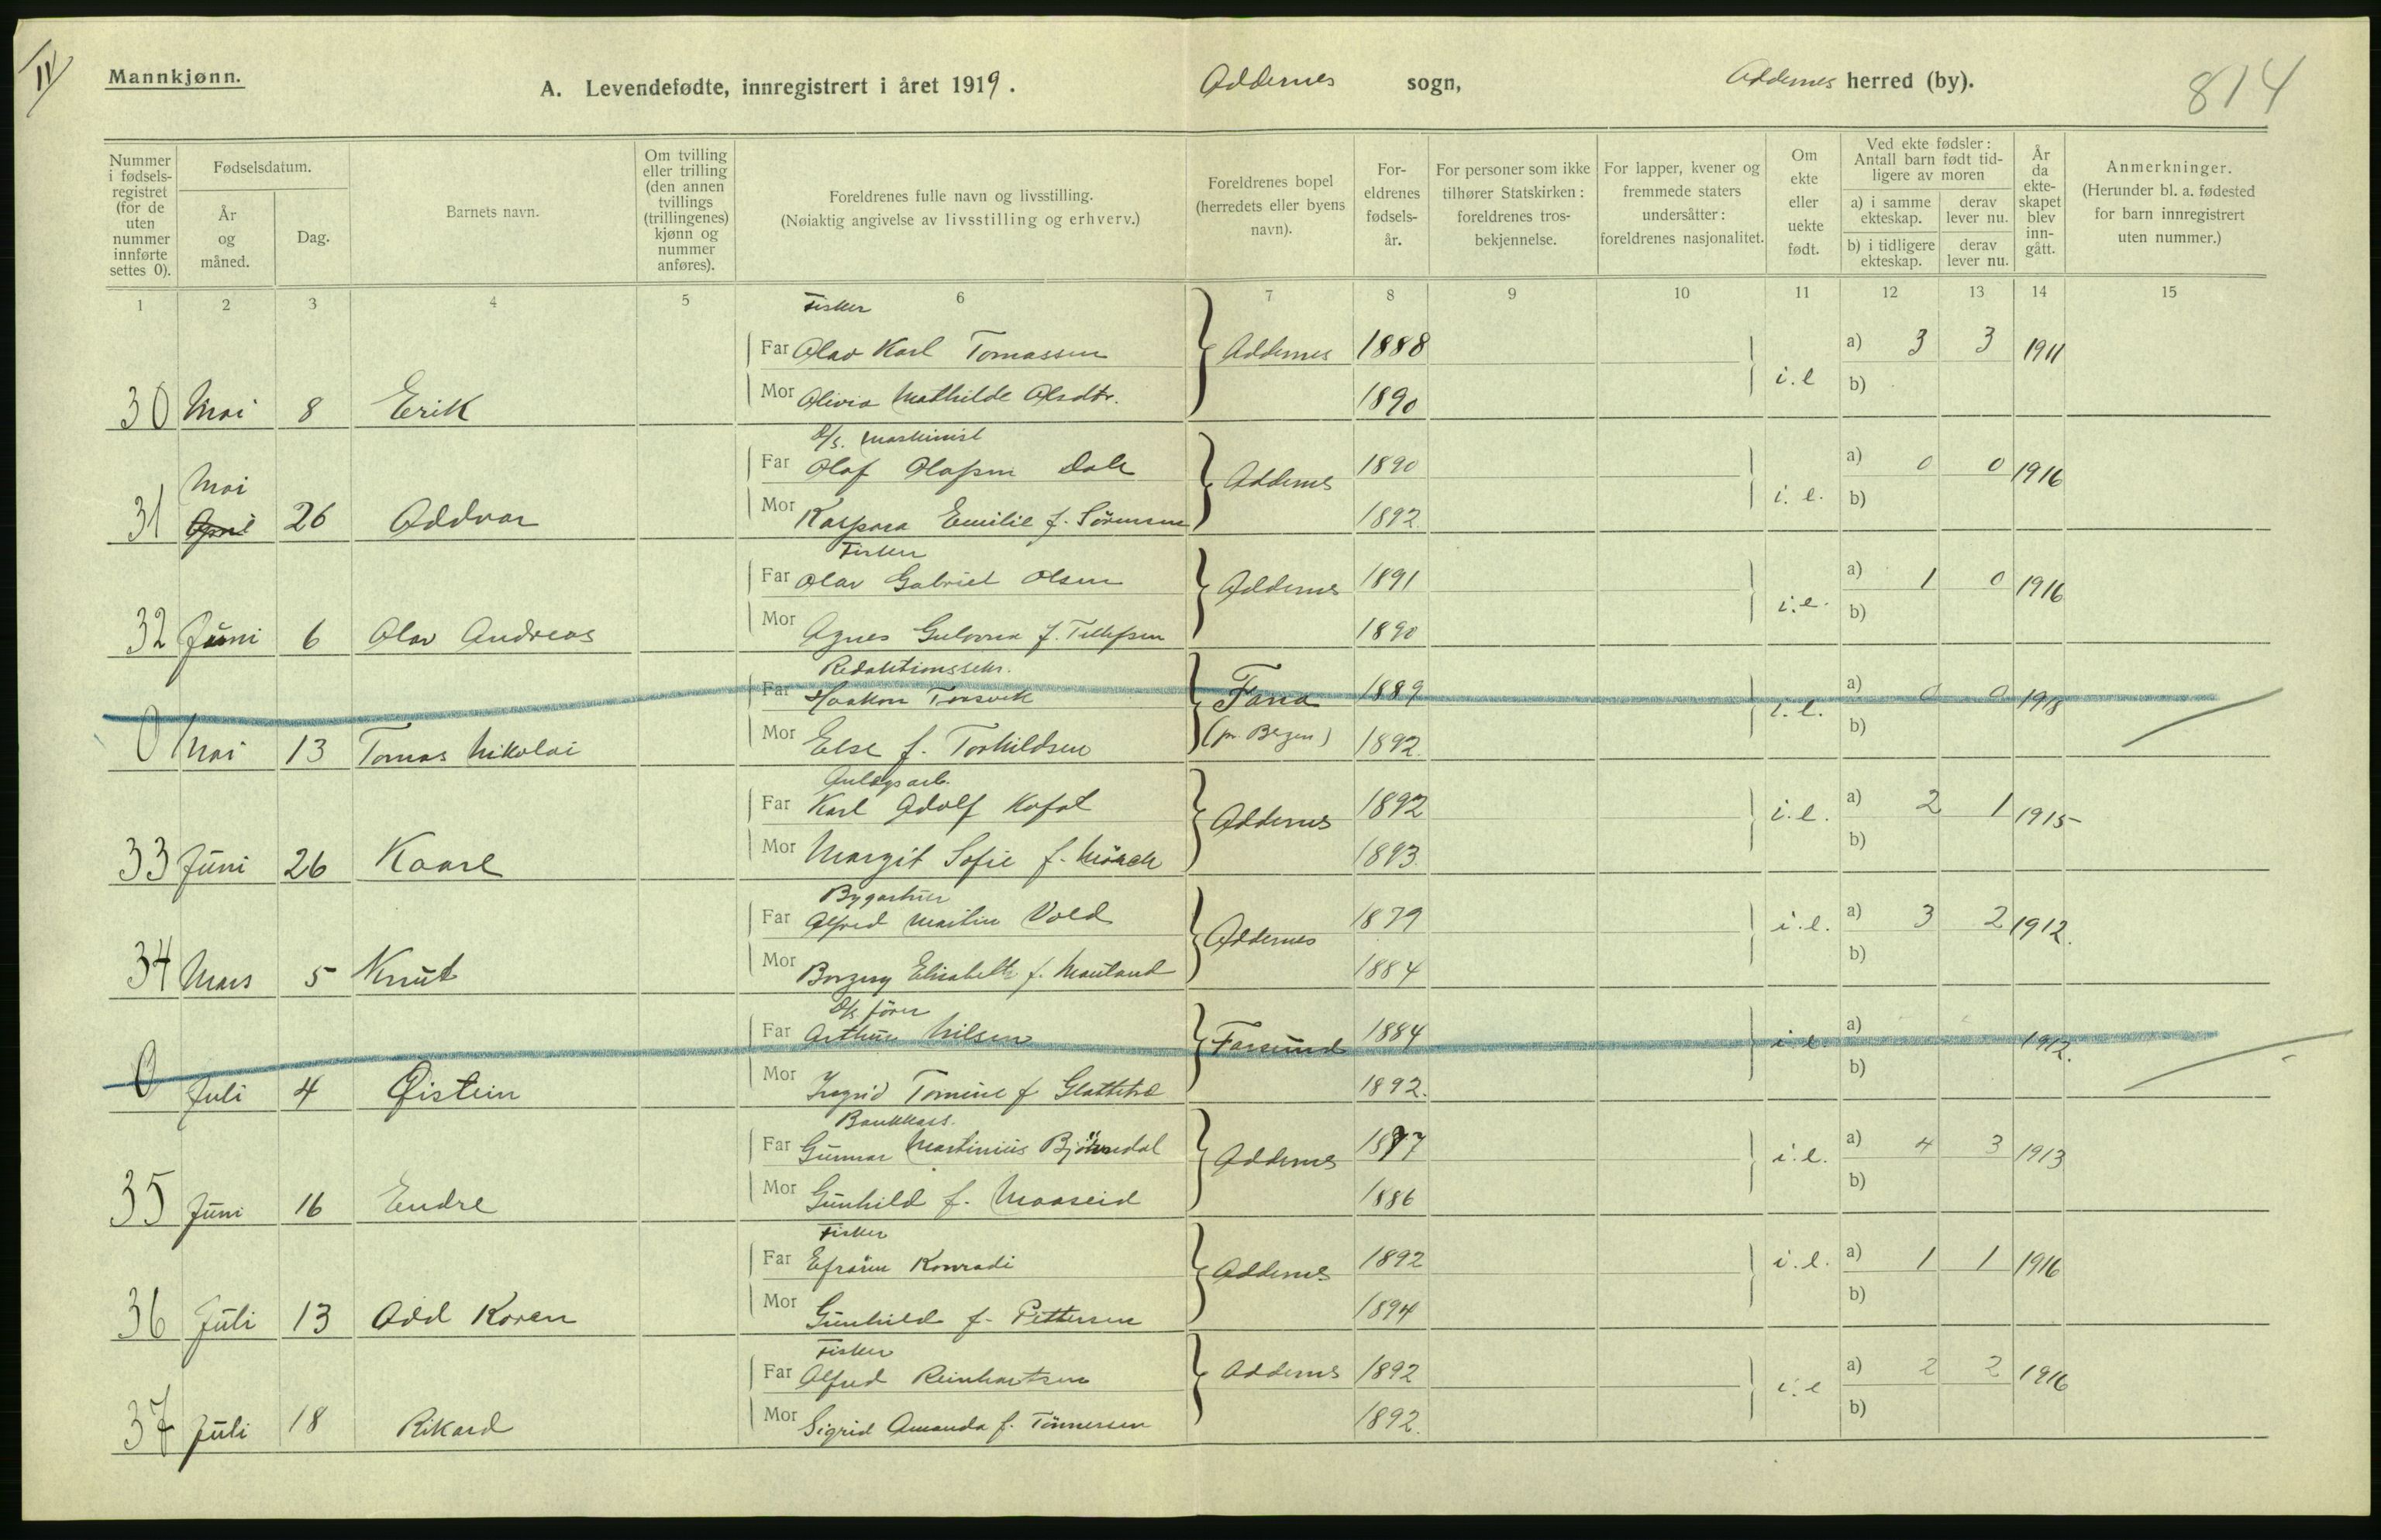 IV
Mannkjønn.
A. Levendefødte, innregistrert i året 1919.
Oddernes sogn,
Oddernes herred (by).
814
Nummer i fødsels-registret (for de uten nummer innførte settes 0).
Fødselsdatum.
År og måned.
Dag.
Barnets navn.
Om tvilling eller trilling (den annen tvillings (trillingenes) kjønn og nummer anføres).
Foreldrenes fulle navn og livsstilling.
(Nøiaktig angivelse av livsstilling og erhverv.)
Foreldrenes bopel (herredets eller byens navn).
For-eldrenes fødsels-år.
For personer som ikke tilhører Statskirken: foreldrenes tros-bekjennelse.
For lapper, kvener og fremmede staters undersåtter: foreldrenes nasjonalitet.
Om ekte eller uekte født.
Ved ekte fødsler: Antall barn født tid-ligere av moren
a) i samme ekteskap.
derav lever nu.
b) i tidligere ekteskap.
derav lever nu.
År da ekte-skapet blev inn-gått.
Anmerkninger.
(Herunder bl. a. fødested for barn innregistrert uten nummer.)
1 2 3 4 5 6 7 8 9 10 11 12 13 14 15
Fisker
Far Olav Karl Tomassen Oddernes 1888 a) 3 3 1911
30 Mai 8 Erik Mor Olivia Mathilde Olsdtr. 1890 i.e b)
D/s. maskinist
Far Olaf Olafsen Dale Oddernes 1890 a) 0 0 1916
Mai
31 April 26 Oddvar Mor Kaspara Emilie f. Sörensen 1892 i.e. b)
Fisker
Far Olav Gabriel Olsen Oddernes 1891 a) 1 0 1916
32 Juni 6 Olav Andreas Mor Agnes Gulovea f. Tellefsen 1890 i.e. b)
Redaktionssekr.
Far Haakon Torsvik Fana 1889 i.e. a) 0 0 1918
0 Mai 13 Tomas Nikolai Mor Else f. Torkildsen (pr. Bergen) 1892 b)
Anlegsarb.
Far Karl Adolf Kofot Oddernes 1892 i.e. a) 2 1 1915
33 Juni 26 Kaare Mor Margit Sofie f. 1893 b)
Bygartner
Far Alfred Martin Vold Oddernes 1879 i.e. a) 3 2 1912.
34 Mars 5 Knut Mor Borgny Elisabeth f. Mauland 1884 b)
D/s förer
Far Arthur Nilsen Farsund 1884 i.e. a) 1912.
0 Juli 4 Øistein Mor Ingrid Tomine f Glattetre 1892. b)
Bankkass.
Far Gunnar Martinius Björnedal Oddernes 1887 i.e. a) 4 3 1913
35 Juni 16 Endre Mor Gunhild f. Maaseid 1886 b)
Fisker
Far Efraim Konradi Oddernes 1892 i.e. a) 1 1 1916
36 Juli 13 Odd Koren Mor Gunhild f. Pettersen 1894 b)
Fisker
Far Alfred Reinhartsen Oddernes 1892 i.e a) 2 2 1916
37 Juli 18 Rikard Mor Sigrid Amanda f. Tönnessen 1892. b)